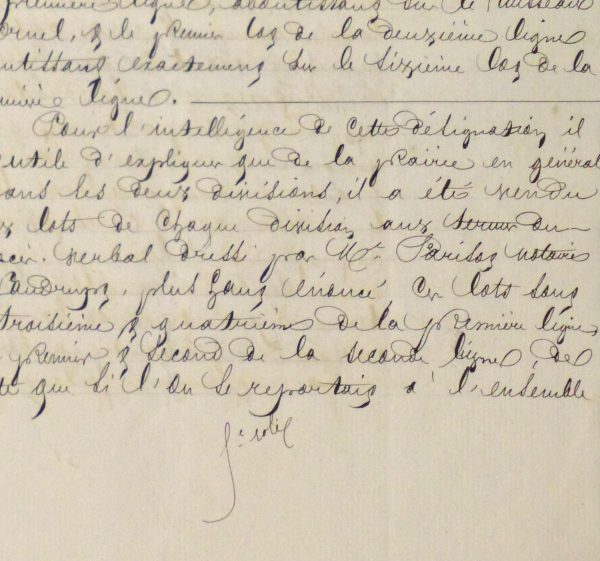 première ligne, aboutissant sur le ruisseau
ornel, & le premier lot de la deuxième ligne
utissant exactement sur le sixième lot de la
mière ligne.
Pour l'intelligence de cette désignation il
utile d'expliquer que de la prairie en général
ans les deux divisions, il a été vendu
x lots de chaque division aux termes du
ocès. verbal dressé par Mr. Parisot notaire
Vaudrupt, plus haut énoncé, ces lots sont
troisième & quatrième de la première ligne,
premier & second de la seconde ligne, de
te que si l'on se reportait à l'ensemble